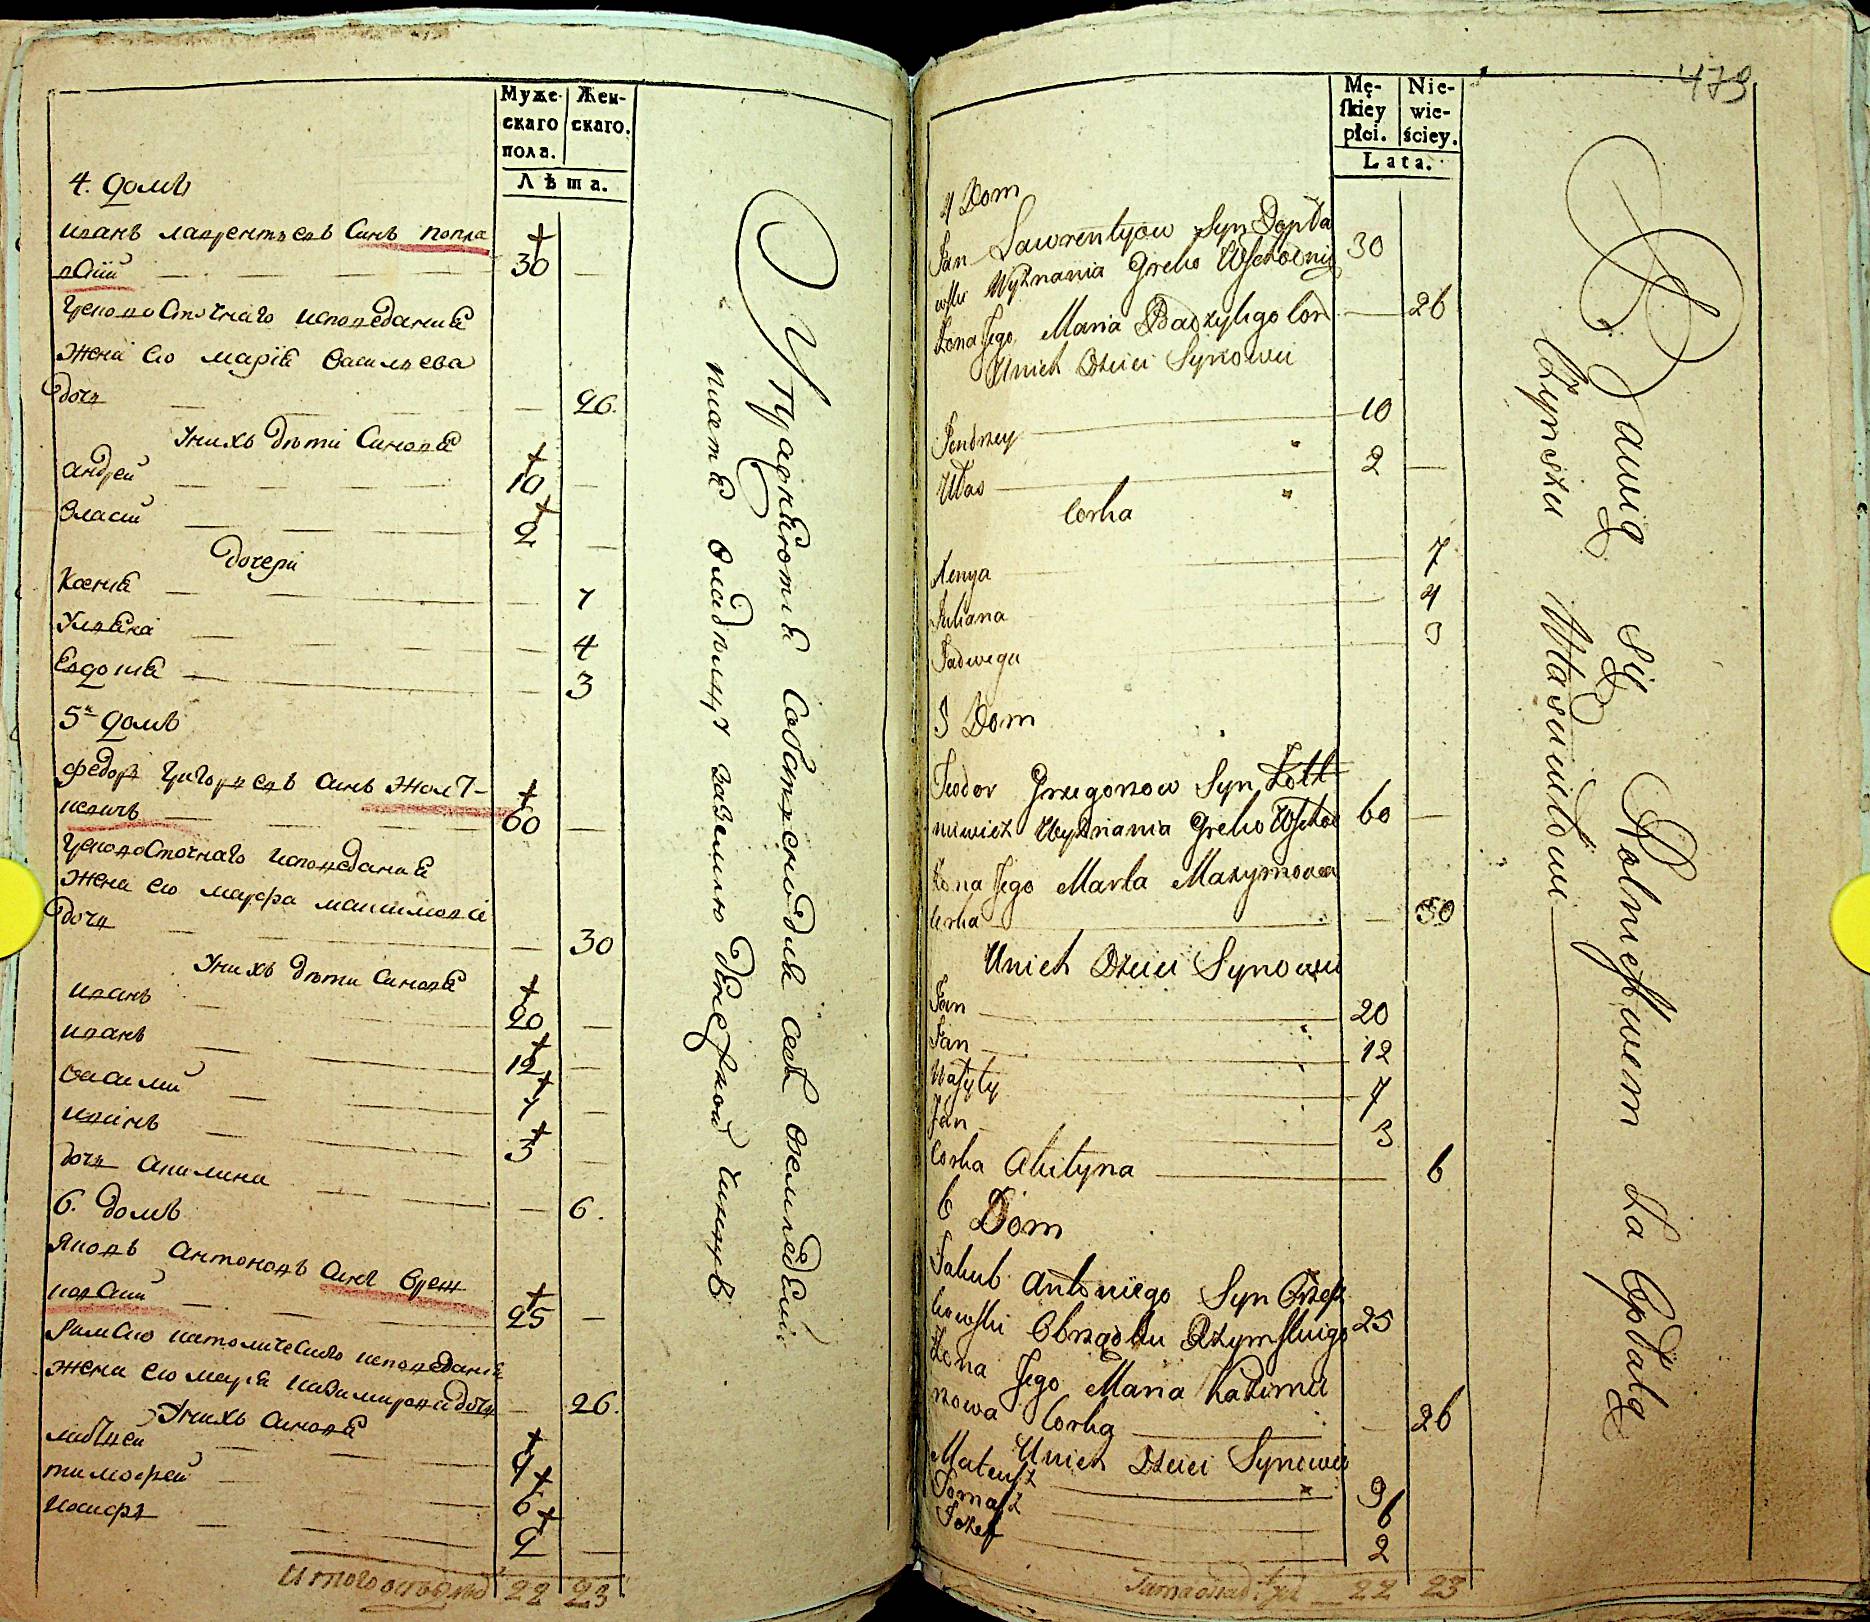 Муже-
скаго
пола.
Жен-
скаго.
Лѣта.
4. домъ
иванъ лаврентьевъ синъ попла
вскій 30
грековосточнаго исповеданія
жена его марія васильева
дочь 26.
у нихъ дѣти синовя
андрей 10
власий 2
дочери
Ксенія 7
Улияна 4
Евдокия 3
5й домъ
федоръ григорьевъ синъ жолт-
невичъ 60
грековосточнаго исповеданія
жена его марфа максимова
дочь 30
у нихъ дѣти синовя
иванъ 20
иванъ 12
василий 7
иванъ 3
дочь акилина 6.
6. домъ
Яковъ антоновъ синъ вреж
ковский 25
римско католическаго исповеданія
жена его мария казимирова дочь 26.
у нихъ синовя
матвей 9
тимофей 6
иосифъ 2
Итого 22 23
Упражняются
платя владельцу за землю чиншъ
479
Mę-
skiey
płci.
Nie-
wie-
ściey.
Lata.
4 Dom
Jan Lawrentyow Syn Popła
wski Wyznania Greko Wschodnig 30
Zona Jego Maria Bazylego Cor 26
Unich Dzieci Synowie
Jendrzey 10
Włas 2
Corka
Xenya 7
Juliana 4
Jadwega 3
5 Dom
Teodor Grzegorzow Syn Zołt
niewicz Wyznania Greko Wschod 60
Zona Jego Marta Maxymowa
Corka 30
Unich Dzieci Synowie
Jan 20
Jan 12
Wasyly 7
Jan 3
Corka Akilyna 6
6 Dom
Jakub Antoniego Syn Wrzeż
kowski Obrządku Rzymskiego 25
Zona Jego Maria Kazimie
rzowa Corka 26
Unich Dzieci Synowie
Mateusz 9
Tomasz 6
Jozef 2
22 23
Bawią się Rolnictwem Za Opłatą
Czynszu Włascicielowi